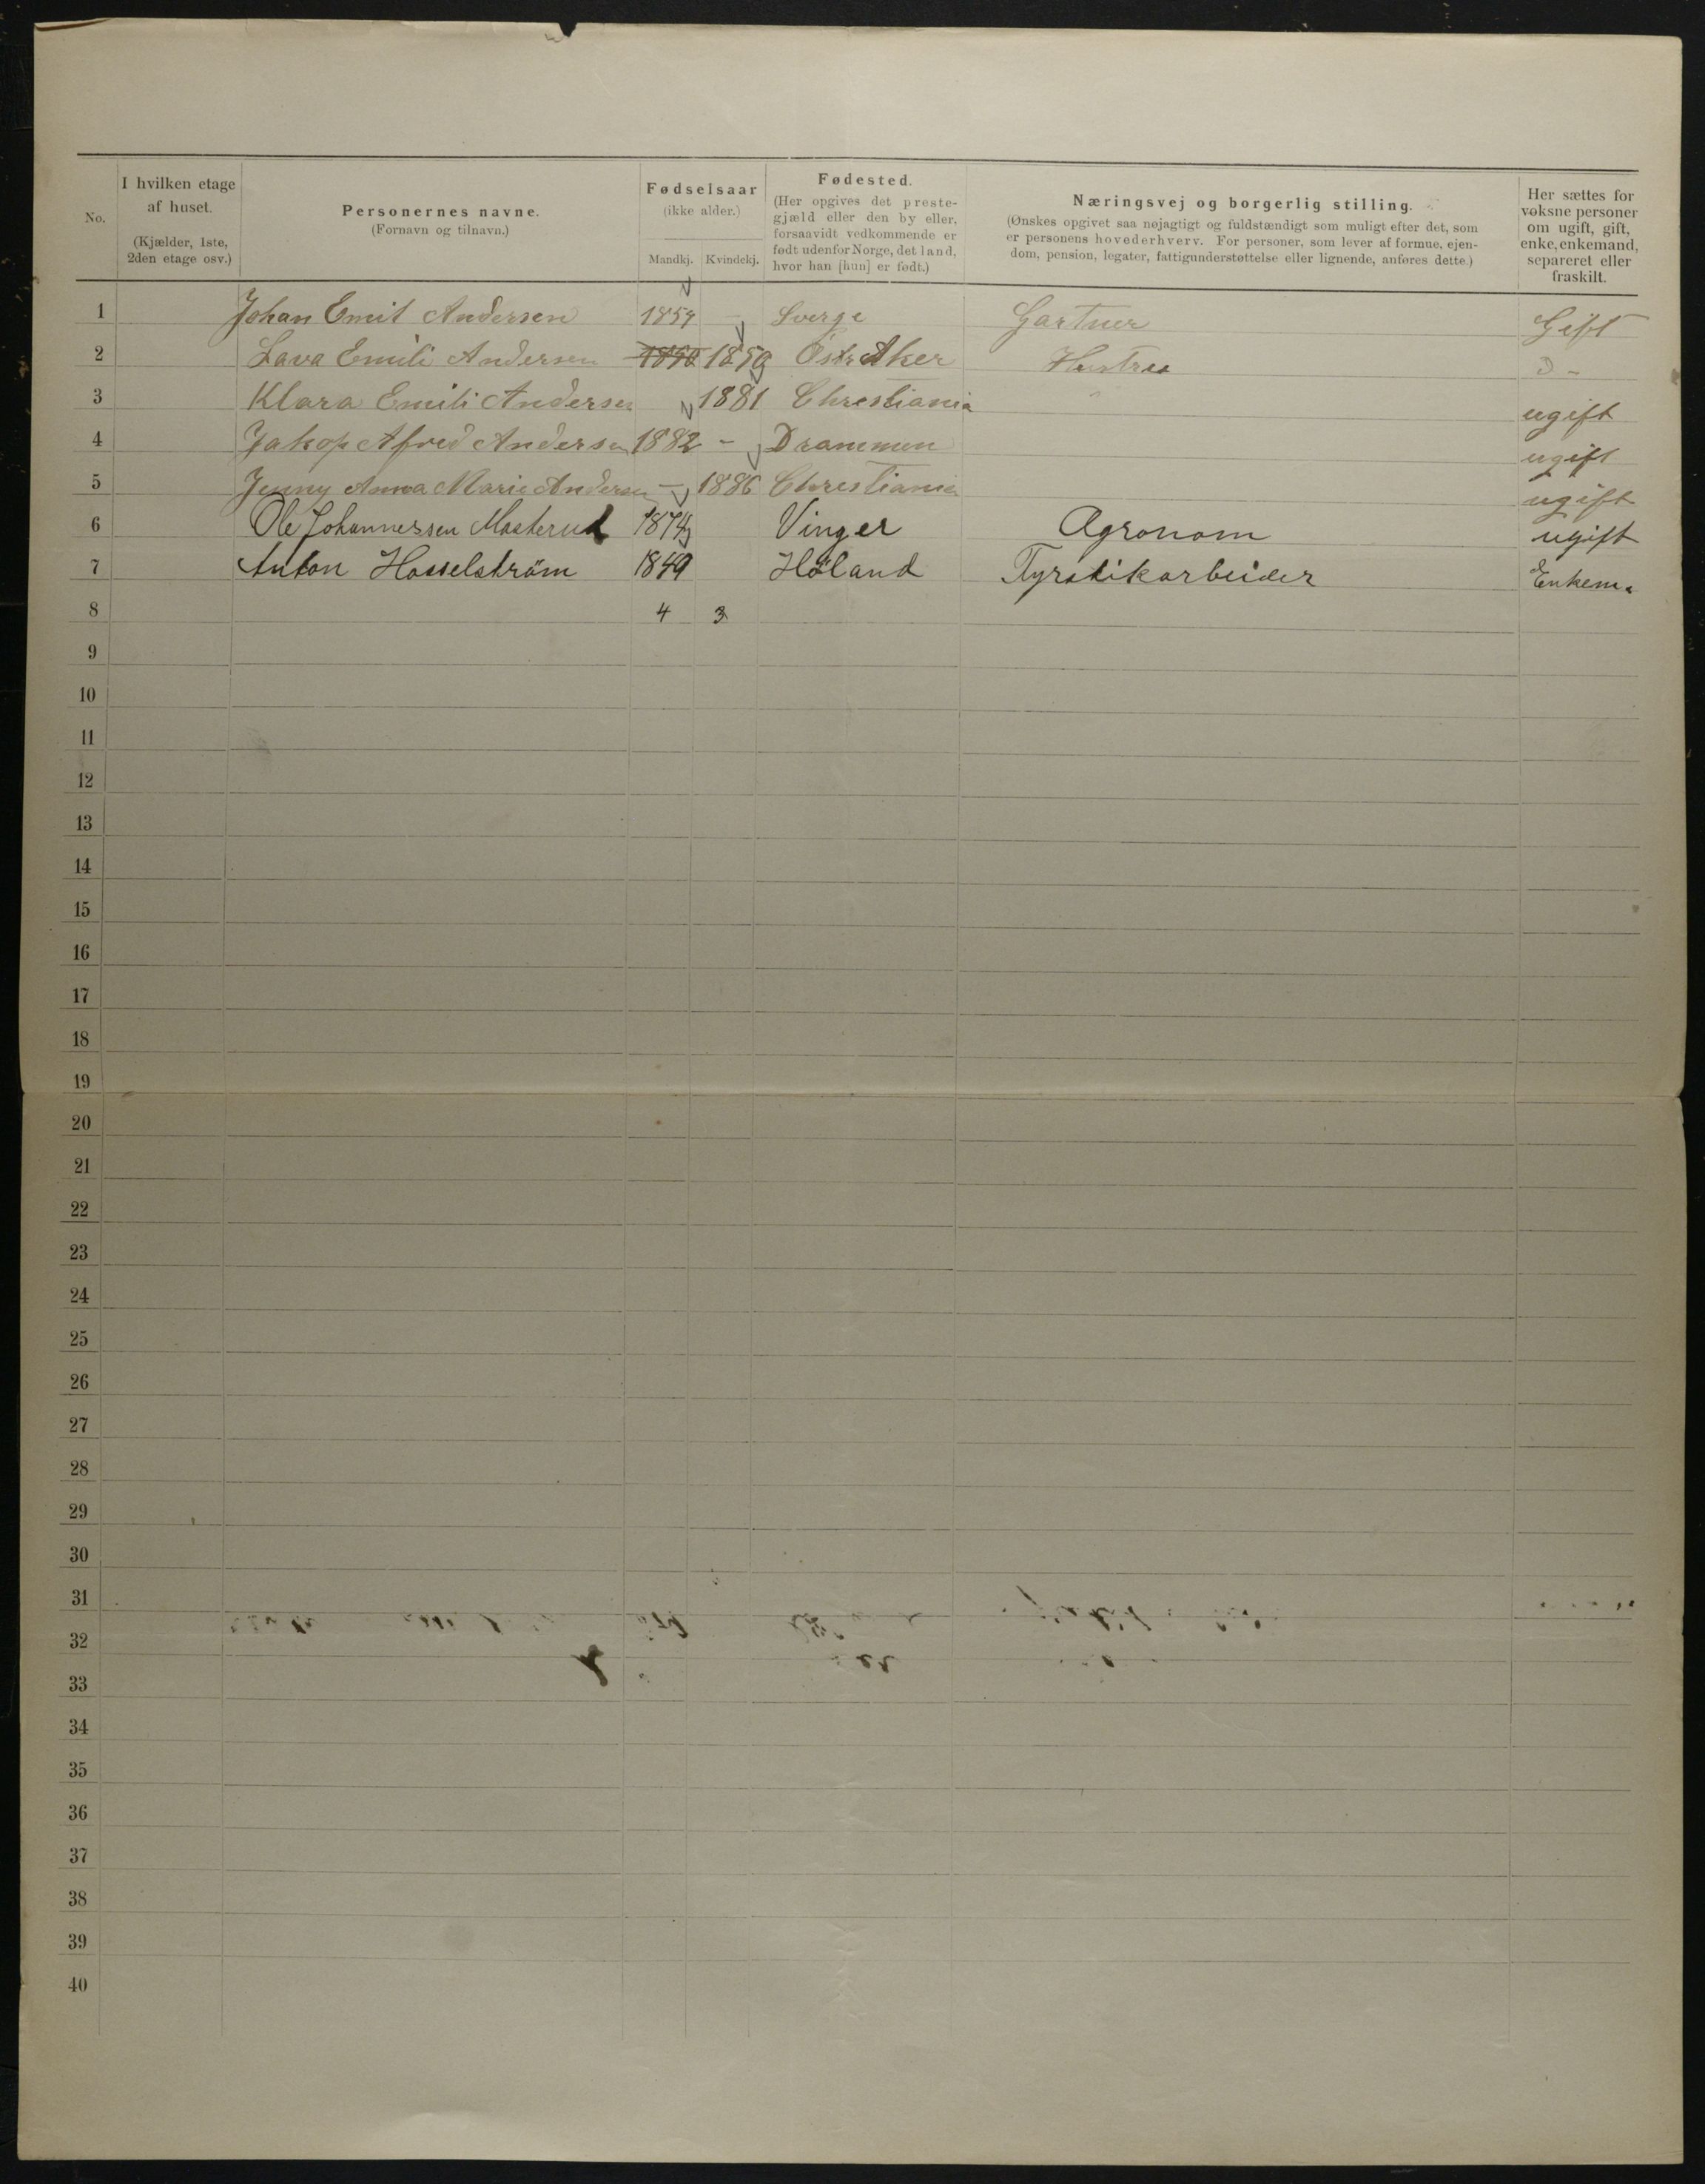 No.
I hvilken etage af huset.
(Kjælder, 1ste, 2den etage osv.)
Personernes navne.
(Fornavn og tilnavn.)
Fødselsaar
(ikke alder.)
Mandkj. Kvindekj.
Fødested.
(Her opgives det preste-
gjæld eller den by eller,
forsaavidt vedkommende er
født udenfor Norge, det land,
hvor han [hun] er født.)
Næringsvej og borgerlig stilling.
(Ønskes opgivet saa nøjagtigt og fuldstændigt som muligt efter det, som
er personens hovederhverv. For personer, som lever af formue, ejen-
dom, pension, legater, fattigunderstøttelse eller lignende, anføres dette.)
Her sættes for
voksne personer
om ugift, gift,
enke, enkemand,
separeret eller
fraskilt.
1 Johan Emil Andersen 1859 - Sverge Gartner Gift
2 Lava Emili Andersen 1859 Østr Aker Hustru D -
3 Klara Emili Andersen 1881 Chrestiania ugift
4 Jakop Afred Andersen 1882 - Drammen ugift
5 Jenny Anna Marie Andersen - 1886 Chrestiania ugift
6 Ole Johannessen Masterud 1874 Vinger Agronom ugift
7 Anton Hasselström 1849 Höland Fyrstikarbeider Enkem.
8 4 3
9
10
11
12
13
14
15
16
17
18
19
20
21
22
23
24
25
26
27
28
29
30
31
32
33
34
35
36
37
38
39
40